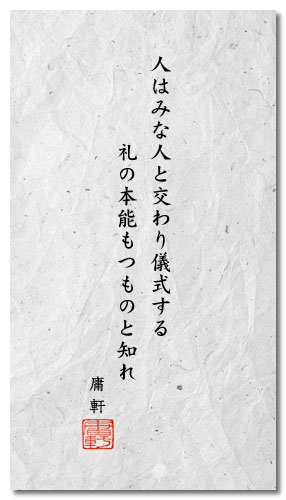 人はみな人と交わり儀式する
礼の本能もつものと知れ
庸軒
庸軒